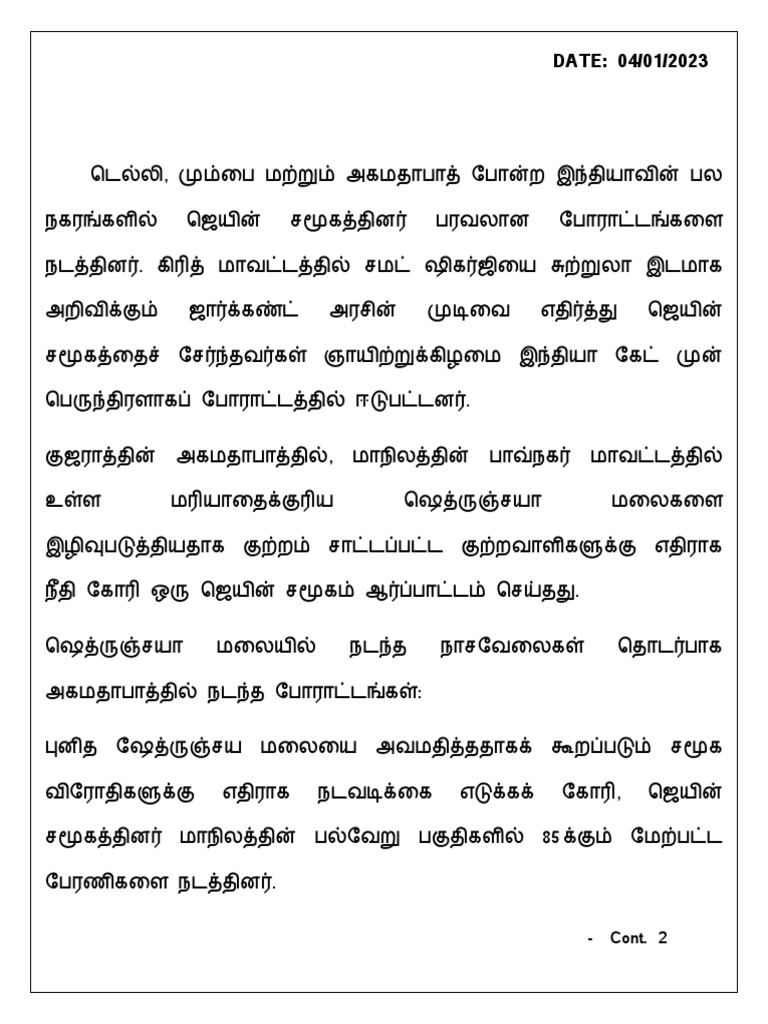 DATE: 04/01/2023
டெல்லி, மும்பை மற்றும் அகமதாபாத் போன்ற இந்தியாவின் பல
நகரங்களில் ஜெயின் சமூகத்தினர் பரவலான போராட்டங்களை
நடத்தினர். கிரித் மாவட்டத்தில் சமட் ஷிகர்ஜியை சுற்றுலா இடமாக
அறிவிக்கும் ஜார்க்கண்ட் அரசின் முடிவை எதிர்த்து ஜெயின்
சமூகத்தைச் சேர்ந்தவர்கள் ஞாயிற்றுக்கிழமை இந்தியா கேட் முன்
பெருந்திரளாகப் போராட்டத்தில் ஈடுபட்டனர்.
குஜராத்தின் அகமதாபாத்தில், மாநிலத்தின் பாவ்நகர் மாவட்டத்தில்
உள்ள மரியாதைக்குரிய ஷெத்ருஞ்சயா மலைகளை
இழிவுபடுத்தியதாக குற்றம் சாட்டப்பட்ட குற்றவாளிகளுக்கு எதிராக
நீதி கோரி ஒரு ஜெயின் சமூகம் ஆர்ப்பாட்டம் செய்தது.
ஷெத்ருஞ்சயா மலையில் நடந்த நாசவேலைகள் தொடர்பாக
அகமதாபாத்தில் நடந்த போராட்டங்கள்:
புனித ஷேத்ருஞ்சய மலையை அவமதித்ததாகக் கூறப்படும் சமூக
விரோதிகளுக்கு எதிராக நடவடிக்கை எடுக்கக் கோரி, ஜெயின்
சமூகத்தினர் மாநிலத்தின் பல்வேறு பகுதிகளில் 85க்கும் மேற்பட்ட
பேரணிகளை நடத்தினர்.
- Cont. 2